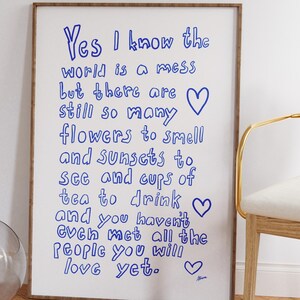 Yes I know the
world is a mess
but there are
still so many
flowers to smell
and sunsets to
see and cups of
tea to drink
and you haven't
even met all the
people you will
love yet.